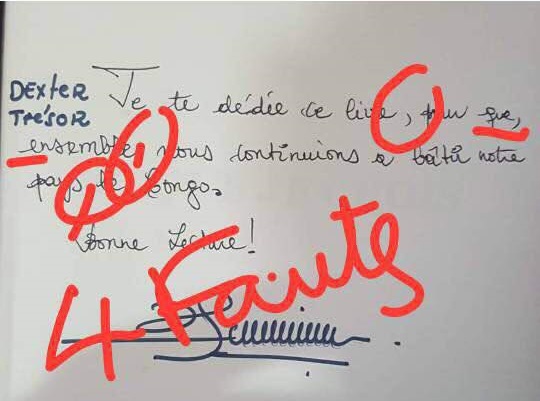 DEXTER
TRÉSOR
Je te dédie ce livre, pour que,
ensemble, nous continuions à bâtir notre
pays le Congo.
Bonne Lecture !
4 Fautes